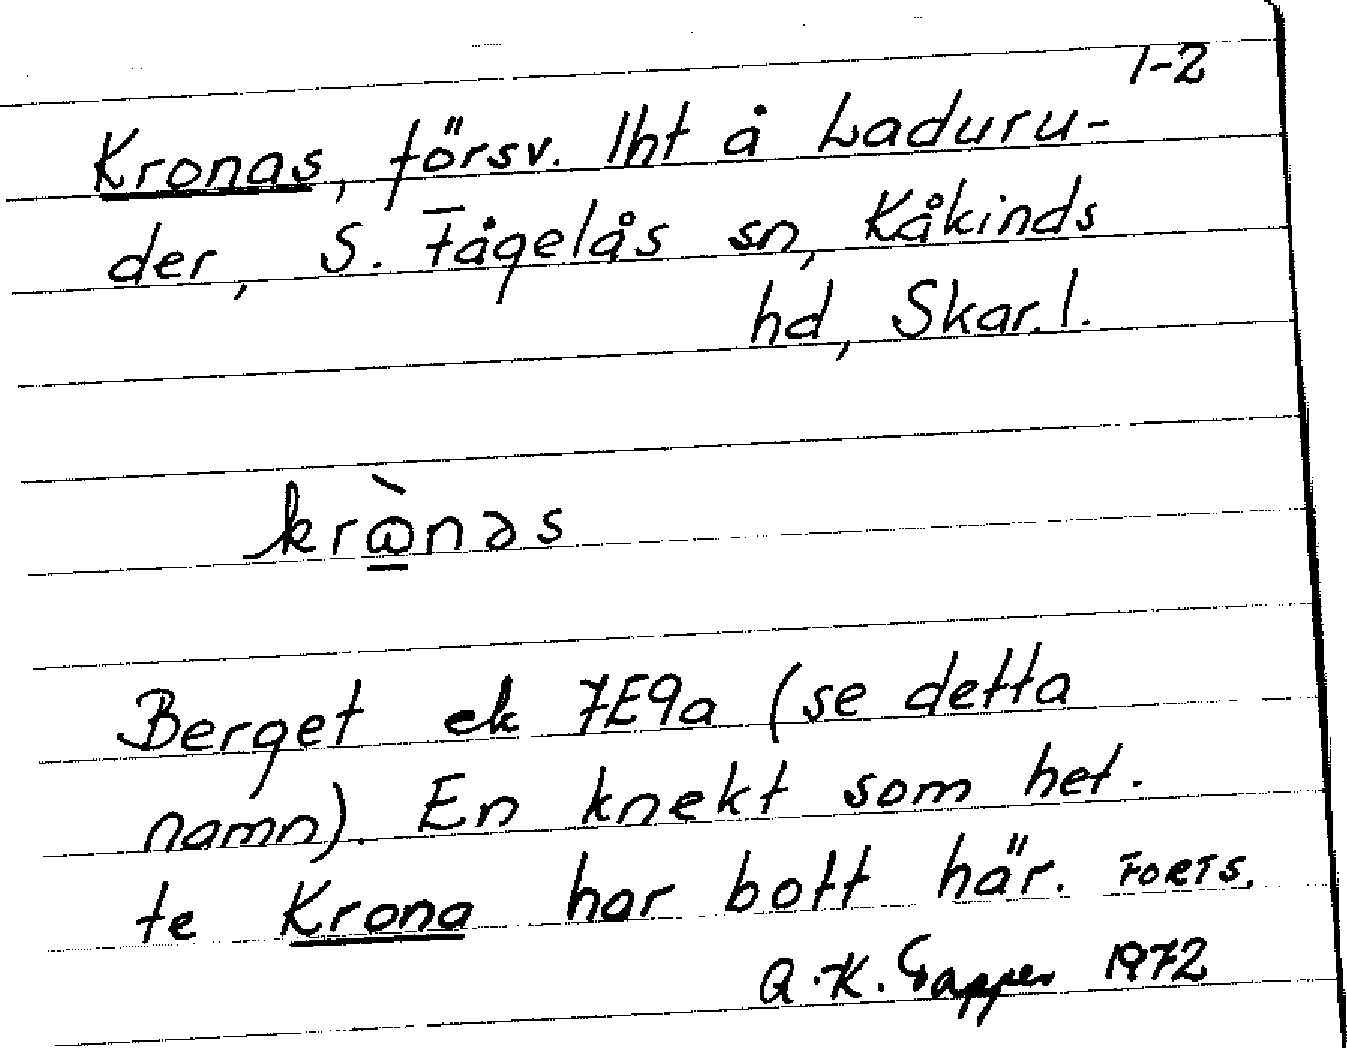 1-2
Kronas, försv. lht å Laduru-
der, S. Fågelås sn, Kåkinds
hd, Skar. l.
krὼnəs
Berget ek 7E9a (se detta
namn). En knekt som het.
te Krona har bott här. FORTS.
1972